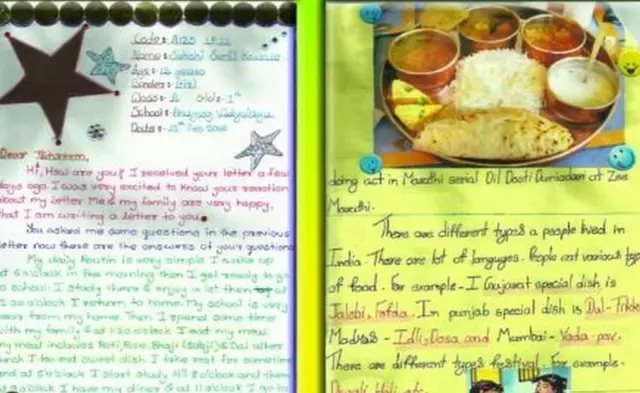 Code :- A125
Name :- Sakshi Sunil
Age :- 12 years
Gender :- Girl
Class :- A std :- 1st
School :- Vidyalaya.
Date :- Feb
Dear
Hi, How are you? I received your letter a few
days ago. I was very excited to know your reaction
about my letter. Me & my family are very happy,
that I am writing a letter to you.
You asked me some questions in the previous
letter now these are the answers of your questions
My daily Routin is very simple I wake up
at o'clock in the morning then I get ready to go
to school. I study there & enjoy a lot then at
o'clock I return to home. My school is very
near from my home. Then I spend some time
with my family & at o'clock I eat my meal
my meal includes Roti, Rice, Bhaji (sabji) & Dal after
I eat sweet dish. I take rest for sometime
and at 5 o'clock I start study till 8 o'clock and then
o'clock I have my diner & at o'clock I go to
doing act in Marathi serial Dil Dosti Duniadari at Zee
Marathi.
There are different types a people lived in
India. There are lot of languges. People eat various type
of food. For example - I Gujarat special dish is
Jalebi, Fafda. In punjab special dish is Dal-Tikki
Madras - Idli, Dosa and Mumbai - Vada pav.
There are different types festival. For example.
Diwali, Holi, etc.